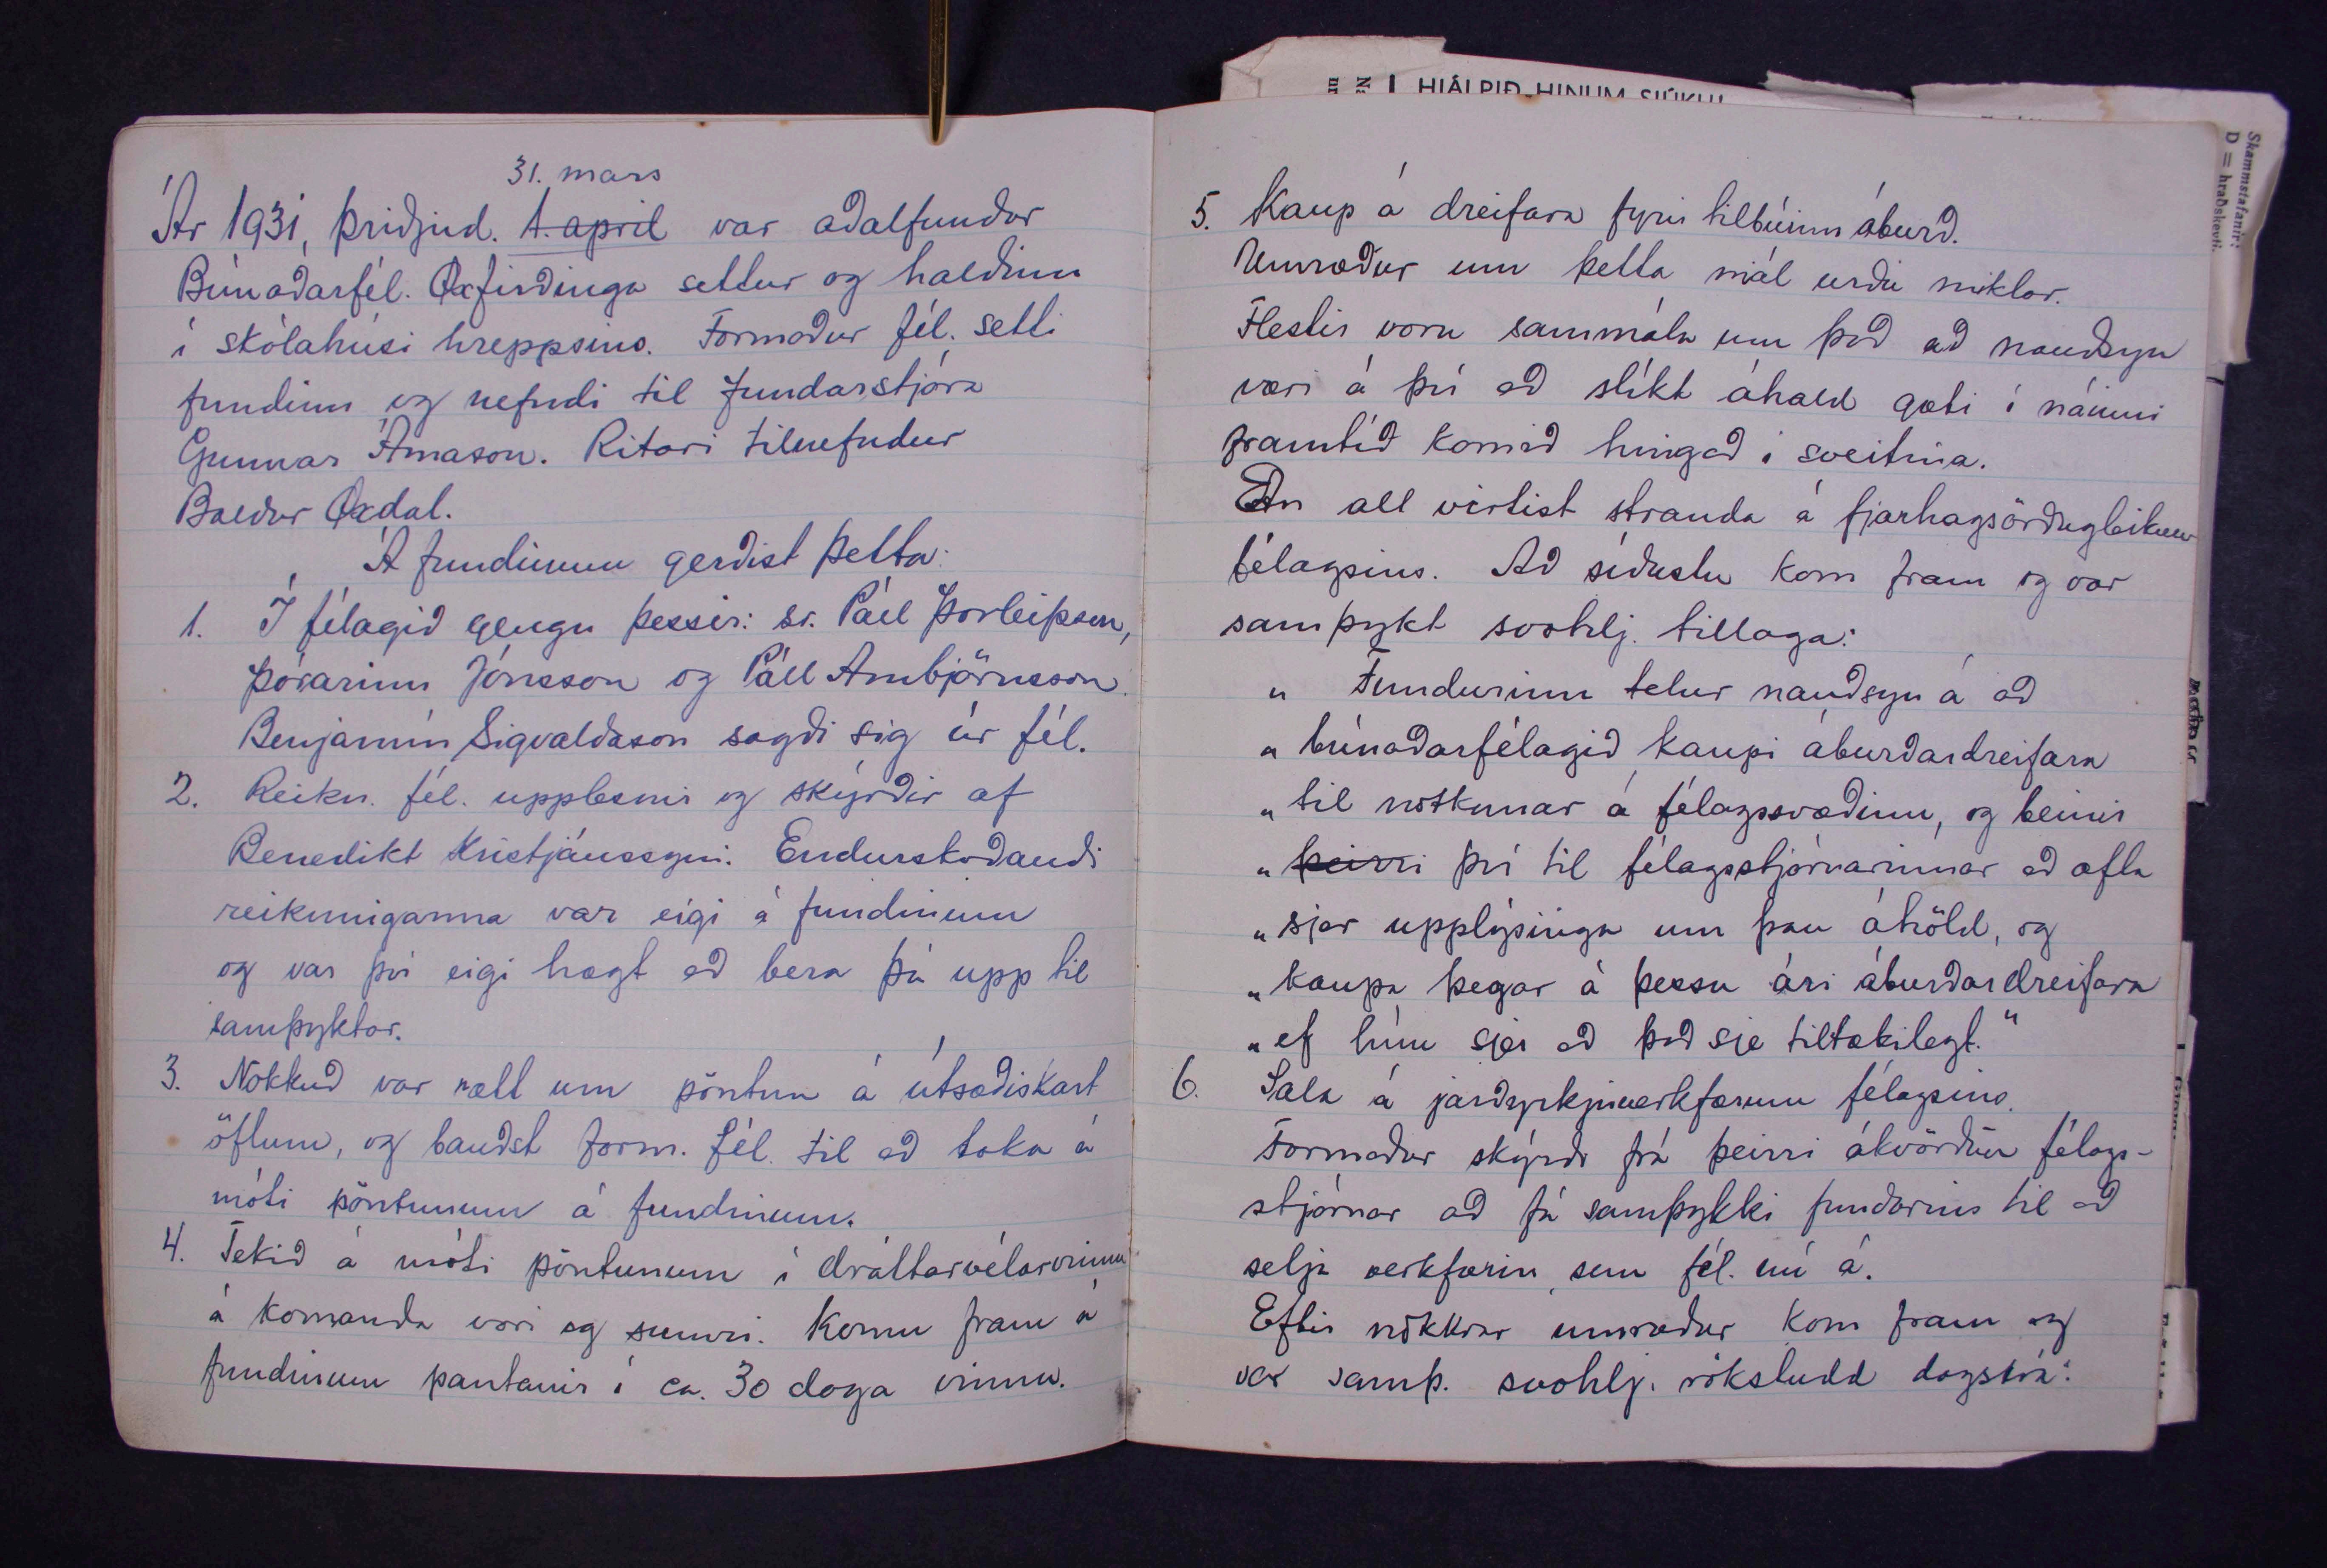 31. mars
Ár 1931, þriðjud. 1. april var aðalfundur
Búnaðarfél. Öxfirðinga settur og haldinn
í skólahúsi hreppsins. Formaður fél. setti
fundinn og nefndi til fundarstjóra
Gunnar Árnason. Ritari tilnefndur
Baldur Öxdal.
Á fundinum gerðist þetta:
1. Í félagið gengu þessir: sr. Páll Þorleifsson,
Þórarinn Jónsson og Páll Arnbjörnsson.
Benjamín Sigvaldason sagði sig úr fél.
2. Reikn. fél. upplesnir og skýrðir af
Benedikt Kristjánssyni. Endurskoðandi
reikninganna var eigi á fundinum
og var því eigi hægt að bera þá upp til
samþyktar.
3. Nokkuð var rætt um pöntun á útsæðiskart
öflum, og bauðst form. fél. til að taka á
móti pöntunum á fundinum.
4. Tekið á móti pöntunum í dráttarvélarvinnu
á komanda vori og sumri. Komu fram á
fundinum pantanir í ca. 30 daga vinnu.
HJÁLPIÐ HINUM SJÚKU!
Skammstafanir:
D = hraðskeyti.
5. Kaup á dreifara fyrir tilbúinn áburð.
Umræður um þetta mál urðu miklar.
Flestir voru sammála um það að nauðsyn
væri á því að slíkt áhald gæti í náinni
framtíð komið hingað í sveitina.
En all virtist stranda á fjárhagsörðugleikum
félagsins. Að síðustu kom fram og var
samþykt svohlj. tillaga:
„ Fundurinn telur nauðsyn á að
„ búnaðarfélagið kaupi áburðardreifara
„ til notkunar á félagssvæðinu, og beinir
„ þeirri því til félagsstjórnarinnar að afla
„ sjer upplýsinga um þau áhöld, og
„ kaupa þegar á þessu ári áburðardreifara
„ ef hún sjer að það sje tiltækilegt."
6. Sala á jarðyrkjuverkfærum félagsins.
Formaður skýrði frá þeirri ákvörðun félags-
stjórnar að fá samþykki fundarins til að
selja verkfærin, sem fél. nú á.
Eftir nokkrar umræður kom fram og
var samþ. svohlj. rökstudd dagskrá: